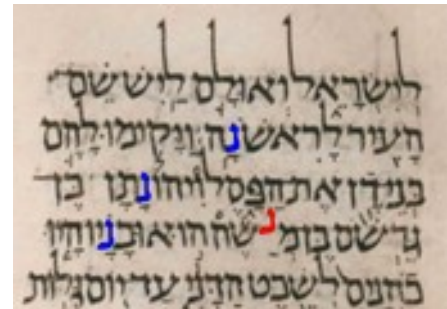 לישראל ואולם ליש שם
העיר לראשנה ויקימו להם
בני דן את הפסל ויהונתן בן
גרשם בן מנשה הוא ובניו היו
כהנים לשבט הדני עד יום גלות